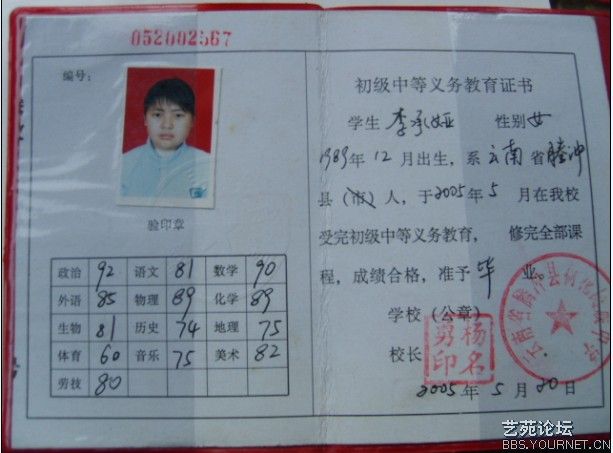 052002567
编号:
验印章
政治 92 语文 81 数学 90
外语 85 物理 89 化学 89
生物 81 历史 74 地理 75
体育 60 音乐 75 美术 82
劳技 80
初级中等义务教育证书
学生 李承娅 性别 女
1989年12月出生,系云南省腾冲
县(市)人,于2005年5月在我校
受完初级中等义务教育, 修完全部课
程,成绩合格,准予毕业。
学校(公章)
云南省腾冲县
校长 杨名男印
2005年5月20日
艺苑论坛
BBS.YOURNET.CN